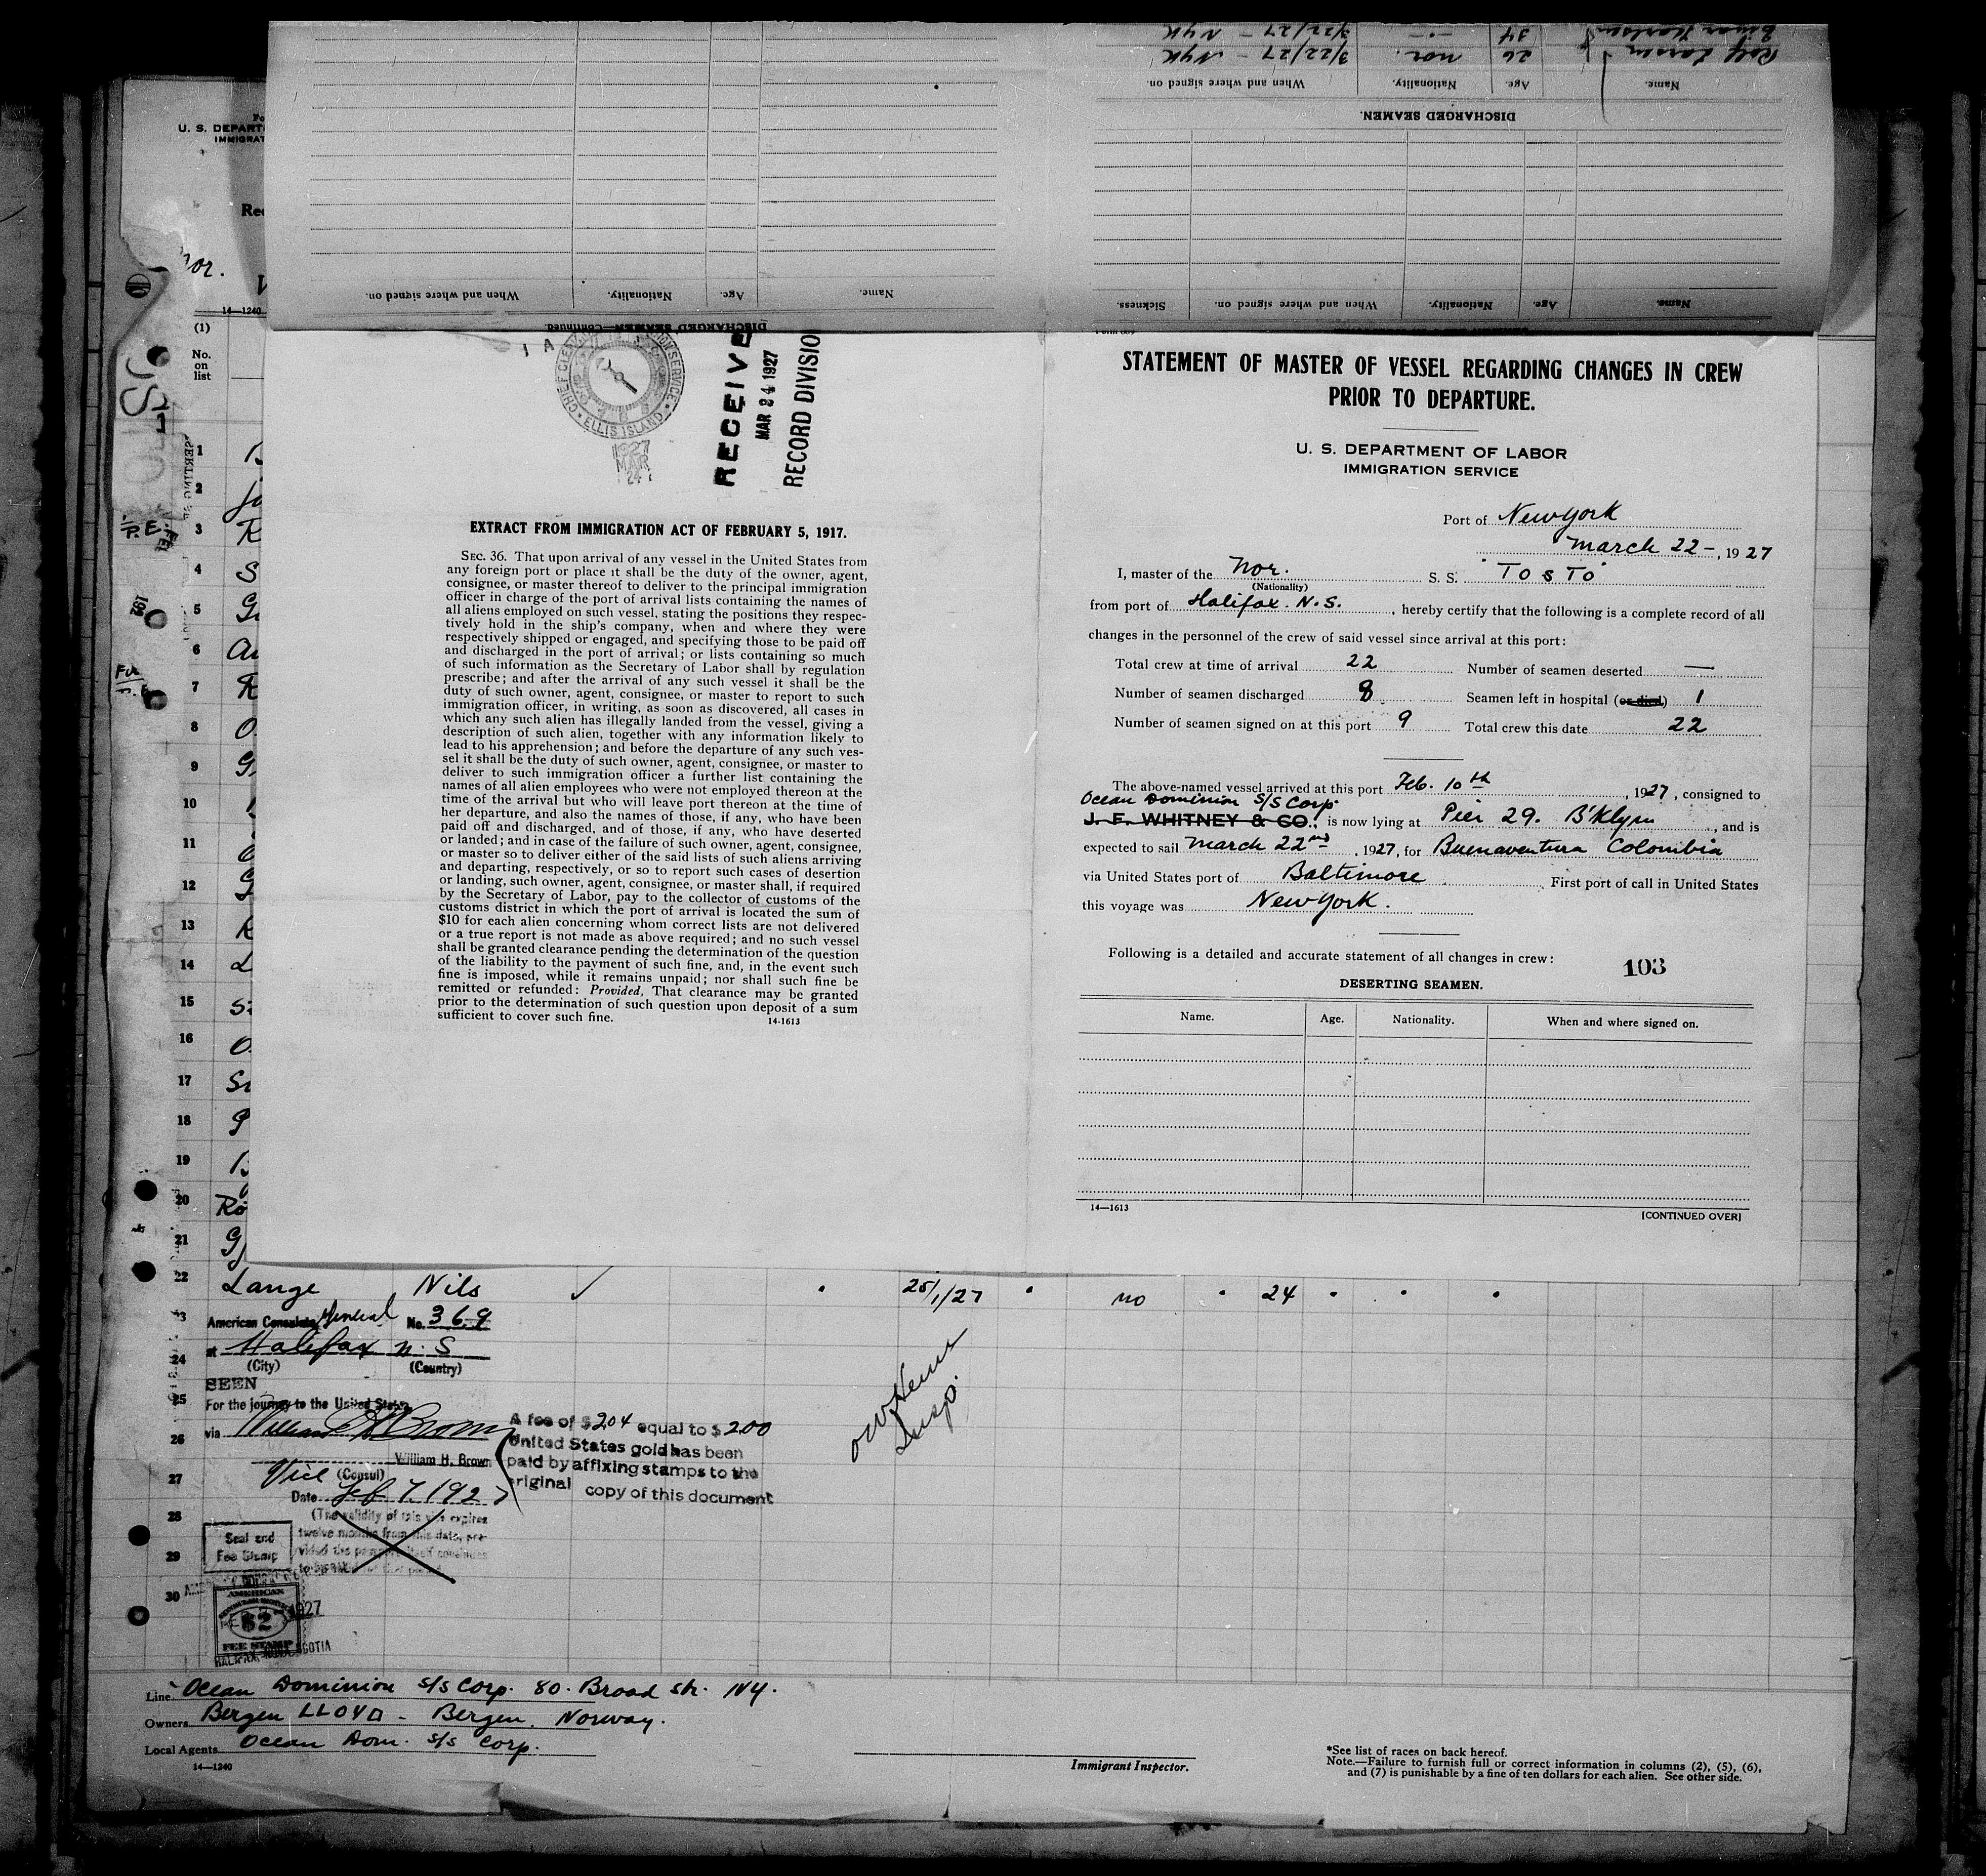 Rolf Larsen 26 nor. 3/22/27 - NYK
Einar 34 3/22/27 - NYK
Name. Age. Nationality. When and where signed on.
DISCHARGED SEAMEN.
Name. Age. Nationality. When and where signed on. Sickness.
Name. Age. Nationality. When and where signed on.
DISCHARGED SEAMEN—Continued
U. S. DEPART
IMMIGRAT
nor.
14—1240
(1)
No.
on
list
CHIEF ELLIS ISLAND
1927
MAR
24
RECEIVE
MAR 24 1927
RECORD DIVISIO
EXTRACT FROM IMMIGRATION ACT OF FEBRUARY 5, 1917.
SEC. 36. That upon arrival of any vessel in the United States from
any foreign port or place it shall be the duty of the owner, agent,
consignee, or master thereof to deliver to the principal immigration
officer in charge of the port of arrival lists containing the names of
all aliens employed on such vessel, stating the positions they respec-
tively hold in the ship's company, when and where they were
respectively shipped or engaged, and specifying those to be paid off
and discharged in the port of arrival; or lists containing so much
of such information as the Secretary of Labor shall by regulation
prescribe; and after the arrival of any such vessel it shall be the
duty of such owner, agent, consignee, or master to report to such
immigration officer, in writing, as soon as discovered, all cases in
which any such alien has illegally landed from the vessel, giving a
description of such alien, together with any information likely to
lead to his apprehension; and before the departure of any such ves-
sel it shall be the duty of such owner, agent, consignee, or master to
deliver to such immigration officer a further list containing the
names of all alien employees who were not employed thereon at the
time of the arrival but who will leave port thereon at the time of
her departure, and also the names of those, if any, who have been
paid off and discharged, and of those, if any, who have deserted
or landed; and in case of the failure of such owner, agent, consignee,
or master so to deliver either of the said lists of such aliens arriving
and departing, respectively, or so to report such cases of desertion
or landing, such owner, agent, consignee, or master shall, if required
by the Secretary of Labor, pay to the collector of customs of the
customs district in which the port of arrival is located the sum of
$10 for each alien concerning whom correct lists are not delivered
or a true report is not made as above required; and no such vessel
shall be granted clearance pending the determination of the question
of the liability to the payment of such fine, and, in the event such
fine is imposed, while it remains unpaid; nor shall such fine be
remitted or refunded: Provided, That clearance may be granted
prior to the determination of such question upon deposit of a sum
sufficient to cover such fine.
14-1613
STATEMENT OF MASTER OF VESSEL REGARDING CHANGES IN CREW
PRIOR TO DEPARTURE.
U. S. DEPARTMENT OF LABOR
IMMIGRATION SERVICE
Port of New York
March 22-, 1927
I, master of the Nor. S. S. "TOSTO"
(Nationality)
from port of Halifax. N.S., hereby certify that the following is a complete record of all
changes in the personnel of the crew of said vessel since arrival at this port:
Total crew at time of arrival 22 Number of seamen deserted —
Number of seamen discharged 8 Seamen left in hospital (or died) 1
Number of seamen signed on at this port 9 Total crew this date 22
The above-named vessel arrived at this port Feb. 10th, 1927, consigned to
Ocean Dominion S/S Corp.
J. F. WHITNEY & CO., is now lying at Pier 29. B'klyn, and is
expected to sail March 22nd, 1927, for Buenaventura Colombia
via United States port of Baltimore First port of call in United States
this voyage was New York.
Following is a detailed and accurate statement of all changes in crew:
103
DESERTING SEAMEN.
Name. Age. Nationality. When and where signed on.
14—1613
[CONTINUED OVER]
1
2
3
4
5
6
7
8
9
10
11
12
13
14
15
16
17
18
19
20
21
22 Lange Nils 25/1/27 " no " 24 " " "
American Consulate General No. 369
at Halifax N.S
24
(City) (Country)
SEEN
25
For the journey to the United States
26
via William H Brown
William H. Brown
27
Vice (Consul)
Date Feb 7, 1927
A fee of $2.04 equal to $2.00
United States gold has been
paid by affixing stamps to the
original copy of this document
28
(The validity of this visa expires
twelve months from this date, pro-
vided the passport itself continues
Seal and
Fee Stamp
29
30
AMERICAN
$2
FEE STAMP
1927
HALIFAX, NOVA SCOTIA
Insp.
Line Ocean Dominion S/S Corp. 80. Broad Str. NY.
Owners Bergen LLOYD - Bergen, Norway.
Local Agents Ocean Dom. S/S Corp.
14—1240
Immigrant Inspector.
*See list of races on back hereof.
Note.—Failure to furnish full or correct information in columns (2), (5), (6),
and (7) is punishable by a fine of ten dollars for each alien. See other side.